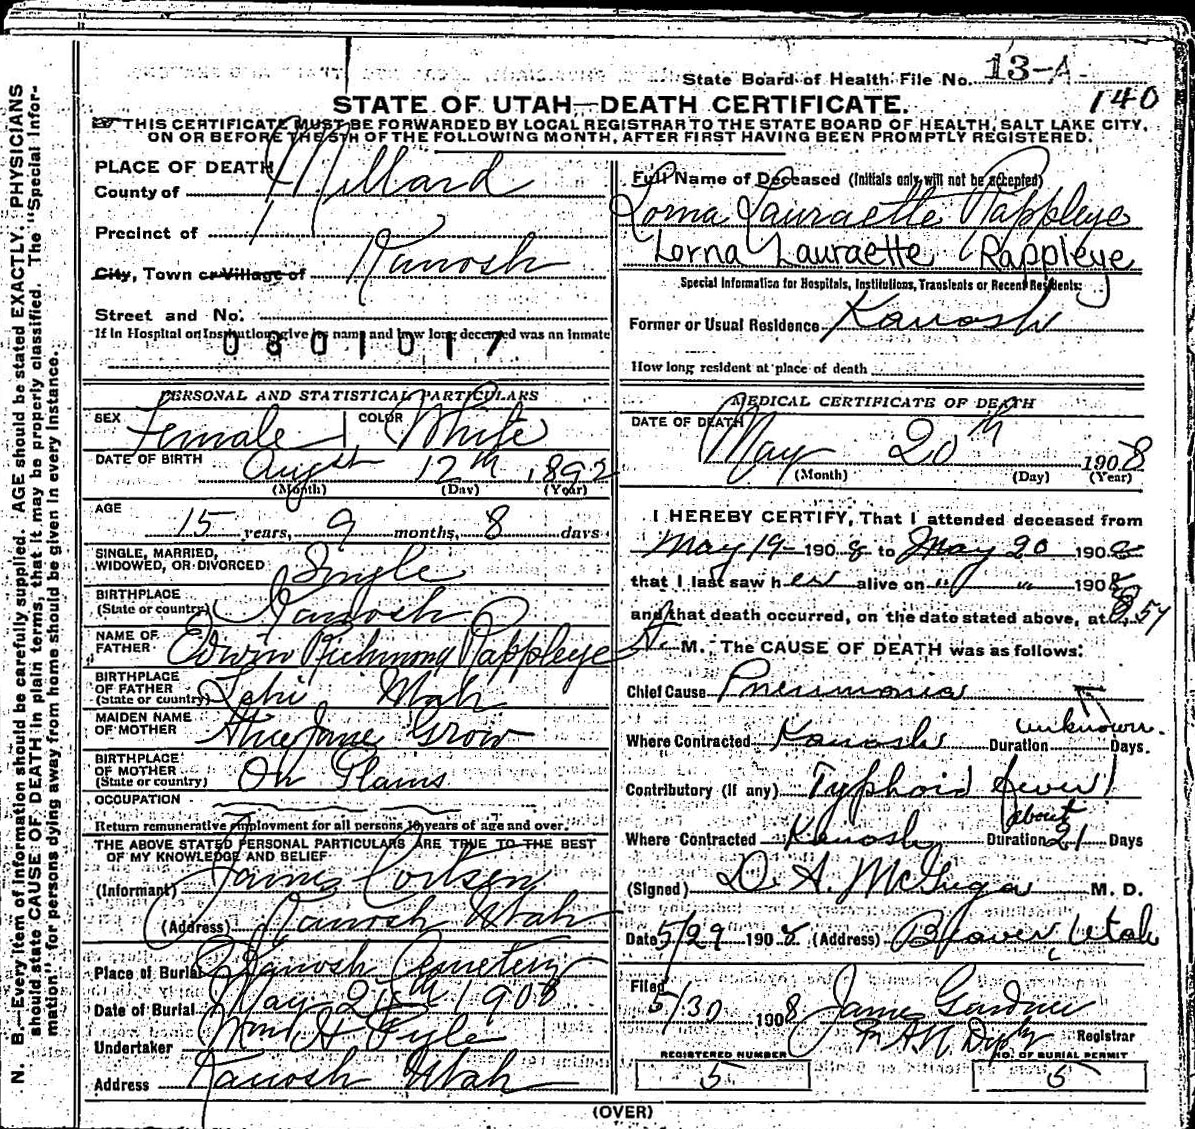 State Board of Health File No. 13-A
140
STATE OF UTAH—DEATH CERTIFICATE.
THIS CERTIFICATE MUST BE FORWARDED BY LOCAL REGISTRAR TO THE STATE BOARD OF HEALTH, SALT LAKE CITY,
ON OR BEFORE THE 5TH OF THE FOLLOWING MONTH, AFTER FIRST HAVING BEEN PROMPTLY REGISTERED.
N. B.—Every item of information should be carefully supplied. AGE should be stated EXACTLY. PHYSICIANS
should state CAUSE OF DEATH in plain terms, that it may be properly classified. The "Special Infor-
mation" for persons dying away from home should be given in every instance.
PLACE OF DEATH
County of Millard
Precinct of
City, Town or Village of Kanosh
Street and No.
If in Hospital or Institution, give its name and how long deceased was an inmate
0801017
PERSONAL AND STATISTICAL PARTICULARS
SEX Female COLOR White
DATE OF BIRTH Augst 12th 1892
(Month) (Day) (Year)
AGE
15 years, 9 months, 8 days
SINGLE, MARRIED,
WIDOWED, OR DIVORCED Single
BIRTHPLACE
(State or country) Kanosh
NAME OF
FATHER Edwin Richmond Rappleye
BIRTHPLACE
OF FATHER
(State or country) Lehi Utah
MAIDEN NAME
OF MOTHER Jane Grow
BIRTHPLACE
OF MOTHER
(State or country) On Plains
OCCUPATION
Return remunerative employment for all persons 10 years of age and over.
THE ABOVE STATED PERSONAL PARTICULARS ARE TRUE TO THE BEST
OF MY KNOWLEDGE AND BELIEF
(Informant) James
(Address) Kanosh Utah
Place of Burial Kanosh Cemetery
Date of Burial May 1908
Undertaker Wm H
Address Kanosh Utah
Full Name of Deceased (Initials only will not be accepted)
Lorna Lauraette Rappleye
Lorna Lauraette Rappleye
Special Information for Hospitals, Institutions, Transients or Recent Residents:
Former or Usual Residence Kanosh
How long resident at place of death
MEDICAL CERTIFICATE OF DEATH
DATE OF DEATH
May 20th 1908
(Month) (Day) (Year)
I HEREBY CERTIFY, That I attended deceased from
May 19 1908 to May 20 1908
that I last saw her alive on " " 1908
and that death occurred, on the date stated above, at
M. The CAUSE OF DEATH was as follows:
Chief Cause Pneumonia
Where Contracted Kanosh Duration unknown Days.
Contributory (If any) Typhoid fever
Where Contracted Kanosh Duration about 21 Days
(Signed) D. A. M. D.
Date 5/29 1908 (Address) Beaver, Utah
Filed
5/30 1908 James
Registrar
REGISTERED NUMBER
5
NO. OF BURIAL PERMIT
5
(OVER)